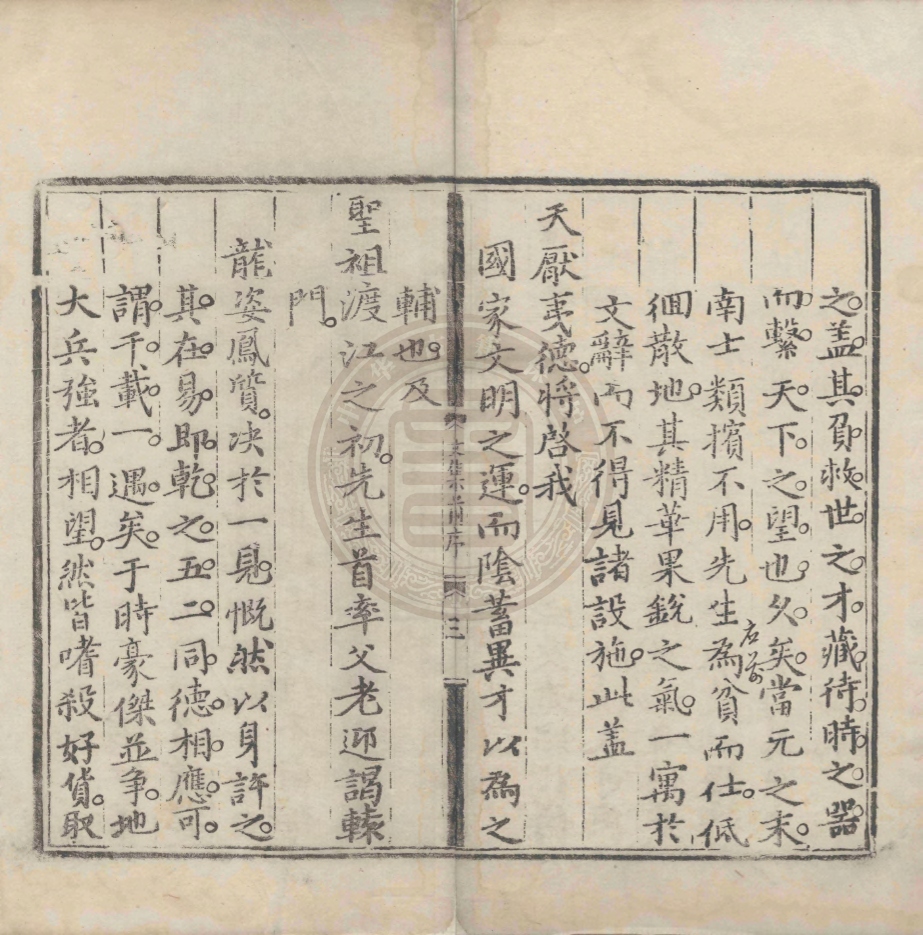 之。蓋其負救世之才。藏待時之器
而繫天下之望也久矣。當元之末
南士類擯不用。先生為貧而仕。低
徊散地。其精華果銳之氣。一寓於
文辭而不得見諸設施。此蓋
天厭夷德。將啓我
國家文明之運。而陰蓄異才以為之
文集前序
三
輔也。及
聖祖渡江之初。先生首率父老迎謁轅
門。
龍姿鳳質。决於一見。慨然以身許之。
其在易。即乾之五二。同德相應。可
謂千載一遇矣。于時豪傑並争。地
大兵強者。相望。然皆嗜殺好貨。取